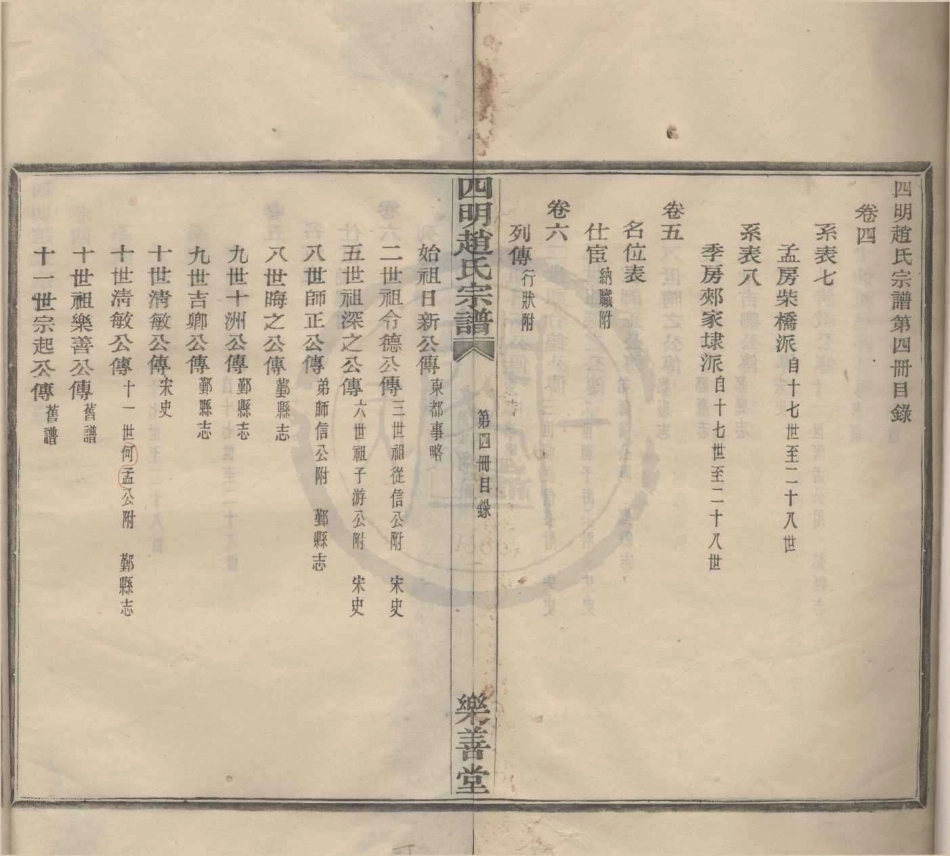 四明趙氏宗譜第四冊目錄
卷四
系表七
孟房柴橋派 自十七世至二十八世
系表八
季房郯家埭派 自十七世至二十八世
卷五
名位表
仕宦 納職附
卷六
列傳 行狀附
四明趙氏宗譜 第四冊目錄 樂善堂
始祖日新公傳 東都事略
二世祖令德公傳 三世祖從信公附 宋史
五世祖深之公傳 六世祖子游公附 宋史
八世師正公傳 弟師信公附 鄞縣志
八世晦之公傳 鄞縣志
九世十洲公傳 鄞縣志
九世吉卿公傳 鄞縣志
十世清敏公傳 宋史
十世清敏公傳 十一世何孟公附 鄞縣志
十世祖樂善公傳 舊譜
十一世宗起公傳 舊譜